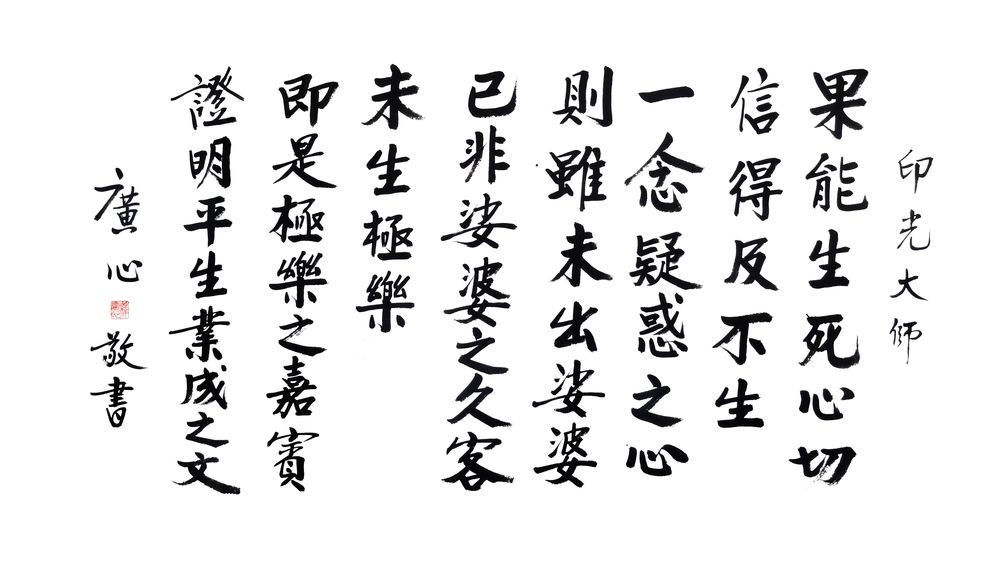 印光大師
果能生死心切
信得及不生
一念疑惑之心
則雖未出娑婆
已非娑婆之久客
未生極樂
即是極樂之嘉賓
證明平生業成之文
廣心
敬書